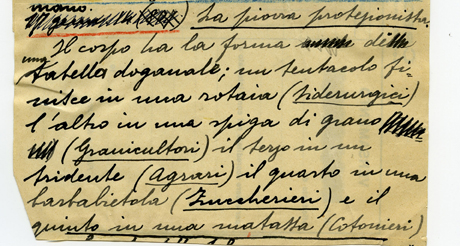 mano.
La piovra protezionista.
Il corpo ha la forma di
una tabella doganale; un tentacolo fi-
nisce in una rotaia (Siderurgici)
l'altro in una spiga di grano
(Granicultori) il terzo in un
tridente (Agrari) il quarto in una
barbabietola (Zuccherieri) e il
quinto in una matassa (Cotonieri)